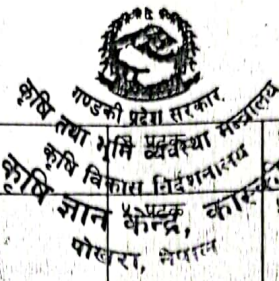 गण्डकी प्रदेश सरकार
कृषि तथा भूमि व्यवस्था मन्त्रालय
कृषि विकास निर्देशनालय
कृषि ज्ञान केन्द्र,
पोखरा, नेपाल